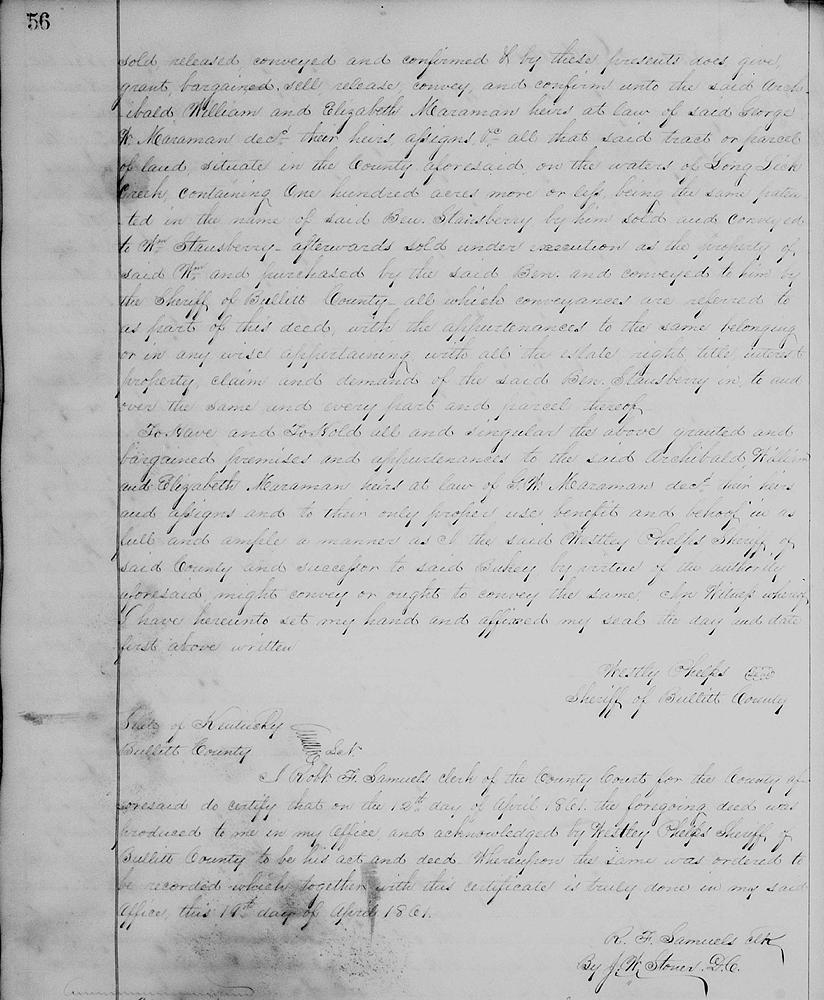 56
sold released conveyed and confirmed & by these presents does give,
grant, bargained, sell release, convey, and confirm unto the said Arch-
ibald, William and Elizabeth Maraman heirs at law of said George
W. Maraman decd. their heirs, assigns &c all that said tract or parcel
of land, situate in the County aforesaid, on the waters of Long Lick
Creek, containing One hundred acres more or less, being the same paten
-ted in the name of said Ben. Stansberry by him sold and conveyed
to Wm Stansberry - afterwards sold under execution as the property of
said Wm and purchased by the said Ben. and conveyed to him by
the Sheriff of Bullitt County - all which conveyances are referred to
as part of this deed, with the appurtenances to the same belonging
or in any wise appertaining with all the estate right title, interest
property, claim and demand of the said Ben. Stansberry in, to and
over the same and every part and parcel thereof
To Have and To Hold all and singular the above granted and
bargained premises and appurtenances to the said Archibald William
and Elizabeth Maraman heirs at law of G. W. Maraman decd. their heirs
and assigns and to their only proper use benefit and behoof in as
full and ample a manner as I the said Westley Phelps Sheriff of
said County and successor to said by virtue of the authority
aforesaid might convey or ought to convey the same. In Witness whereof
I have hereunto set my hand and affixed my seal the day and date
first above written
Westly Phelps Seal
Sheriff of Bullitt County
State of Kentucky
Bullitt County Sct.
I Robt. F. Samuels clerk of the County Court for the County af-
oresaid do certify that on the 12th day of April 1861. the foregoing deed was
produced to me in my office, and acknowledged by Westley Phelps Sheriff of
Bullitt County to be his act and deed. Whereupon the same was ordered to
be recorded which together with this certificate is truly done in my said
Office, this 19th day of April 1861.
R. F. Samuels Clk
By J. W. D.C.